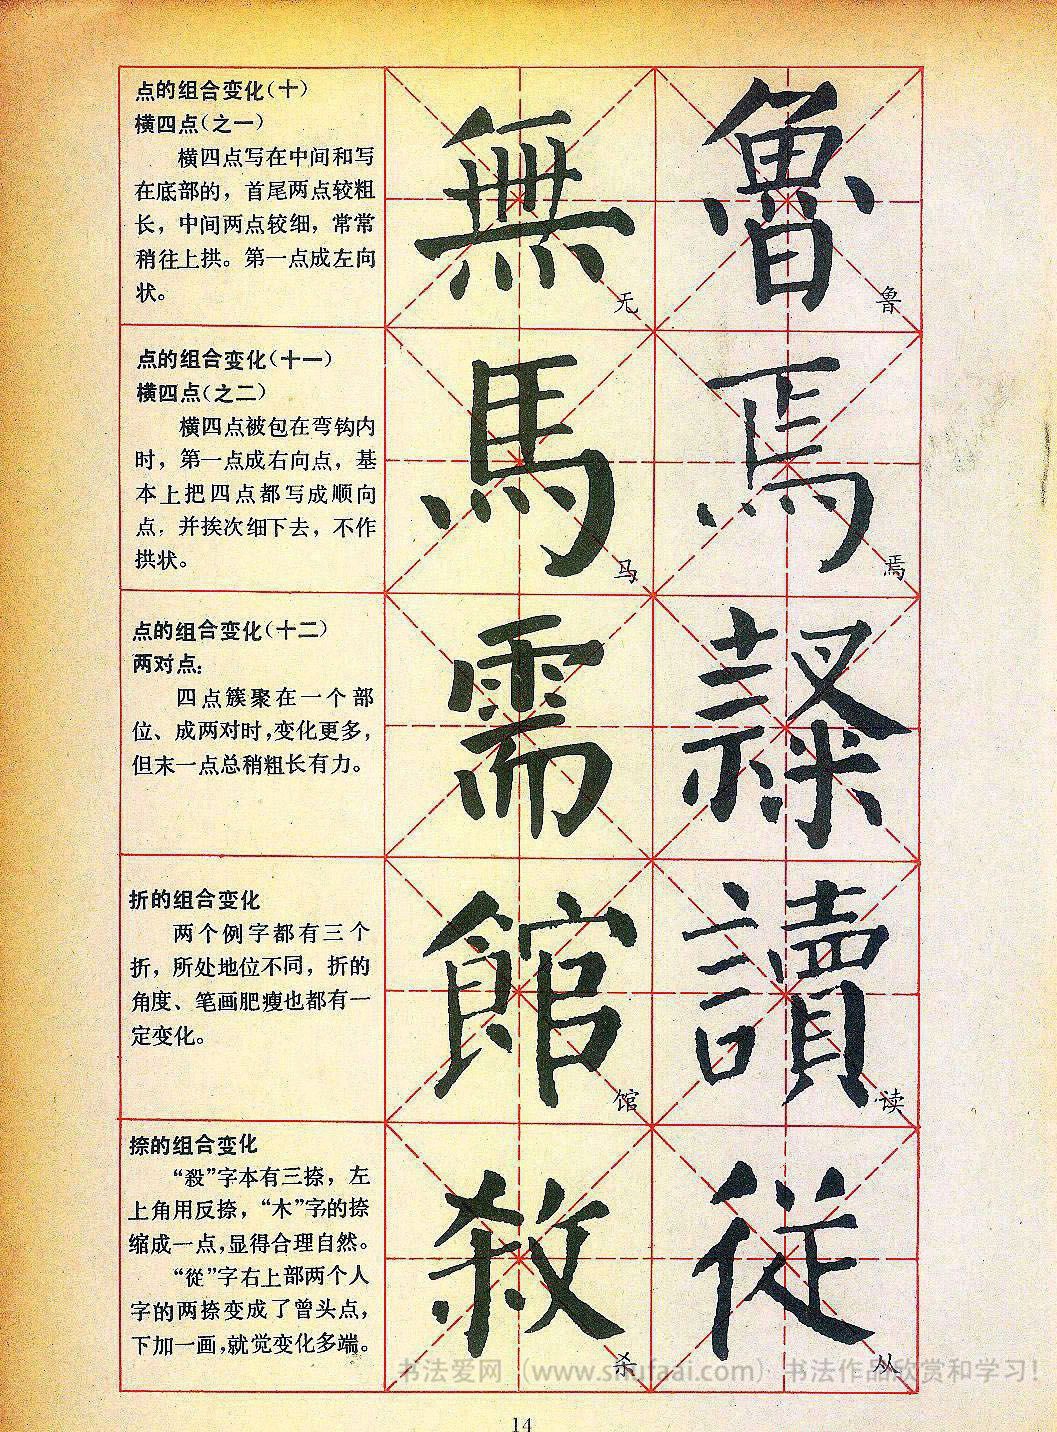 点的组合变化（十）
横四点（之一）
横四点写在中间和写
在底部的，首尾两点较粗
长，中间两点较细，常常
稍往上拱。第一点成左向
状。
無
无
魯
鲁
点的组合变化（十一）
横四点（之二）
横四点被包在弯钩内
时，第一点成右向点，基
本上把四点都写成顺向
点，并挨次细下去，不作
拱状。
馬
马
焉
焉
点的组合变化（十二）
两对点：
四点簇聚在一个部
位、成两对时，变化更多，
但末一点总稍粗长有力。
需
折的组合变化
两个例字都有三个
折，所处地位不同，折的
角度、笔画肥瘦也都有一
定变化。
館
馆
讀
读
捺的组合变化
“殺”字本有三捺，左
上角用反捺，“木”字的捺
缩成一点，显得合理自然。
“從”字右上部两个人
字的两捺变成了曾头点，
下加一画，就觉变化多端。
杀
從
从
书法爱网（www.shufaai.com）书法作品欣赏和学习！
14